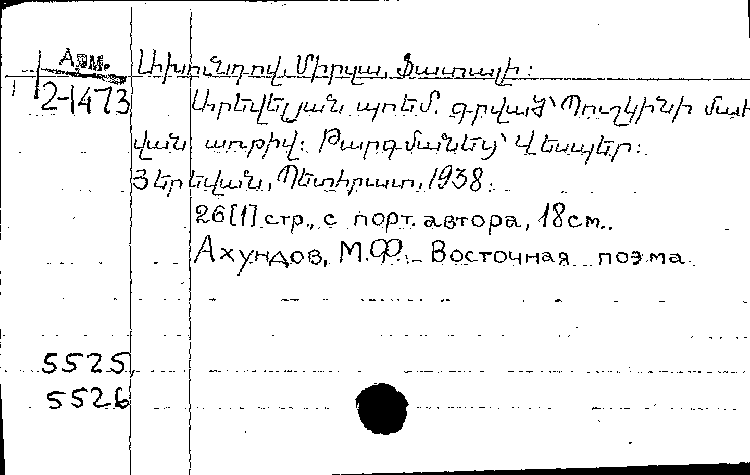 Арм.
2-1473
Ախունդով, Միրզա, Ֆատալի:
Արեվելյան պոեմ. գրված՝ Պուշկինի մահ
վան առթիվ: Թարգմանեց՝ Վեսպեր:
Յերեվան, Պետհրատ, 1938.
26[1] стр., с порт. автора, 18 см.
Ахундов, М.Ф. Восточная поэма
5525
5526